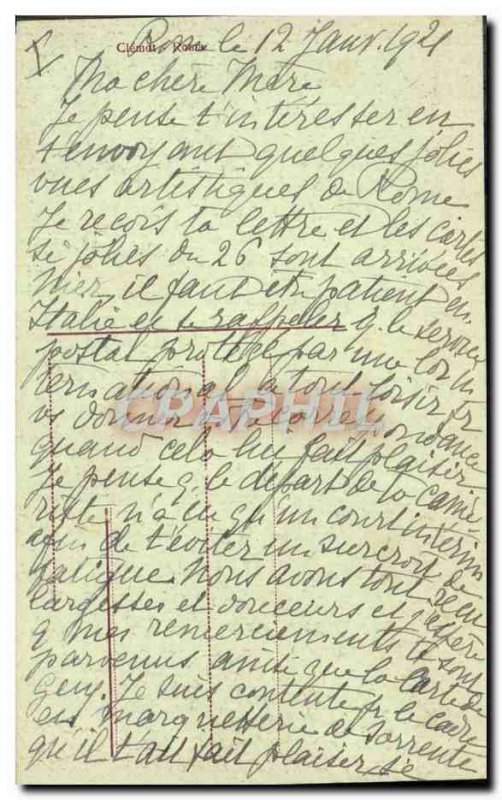 Rome le 12 Janv. 1921
Clément Rome
Ma chère Mère
Je pense t'intéresser en
t'envoyant quelques jolies
vues artistiques de Rome
Je reçois ta lettre et les cartes
si jolies du 26 sont arrivées
hier, il faut être patient en
Italie et se rappeler q. le service
postal protégé par une loi in
ternational a tout loisir pr
vs donner votre correspondance
quand cela lui fait plaisir
Je pense q. le départ de ta camé
riste n'a eu qu'un court intérim
afin de t'éviter un surcroît de
fatigue. Nous avons tout reçu
largesses et douceurs et j'espère
q mes remerciements te sont
parvenus ainsi que la carte de
Geny. Je suis contente pr le cadre
en marquetterie de Sorrente
qu'il t'ait fait plaisir, se
CRAPHIL